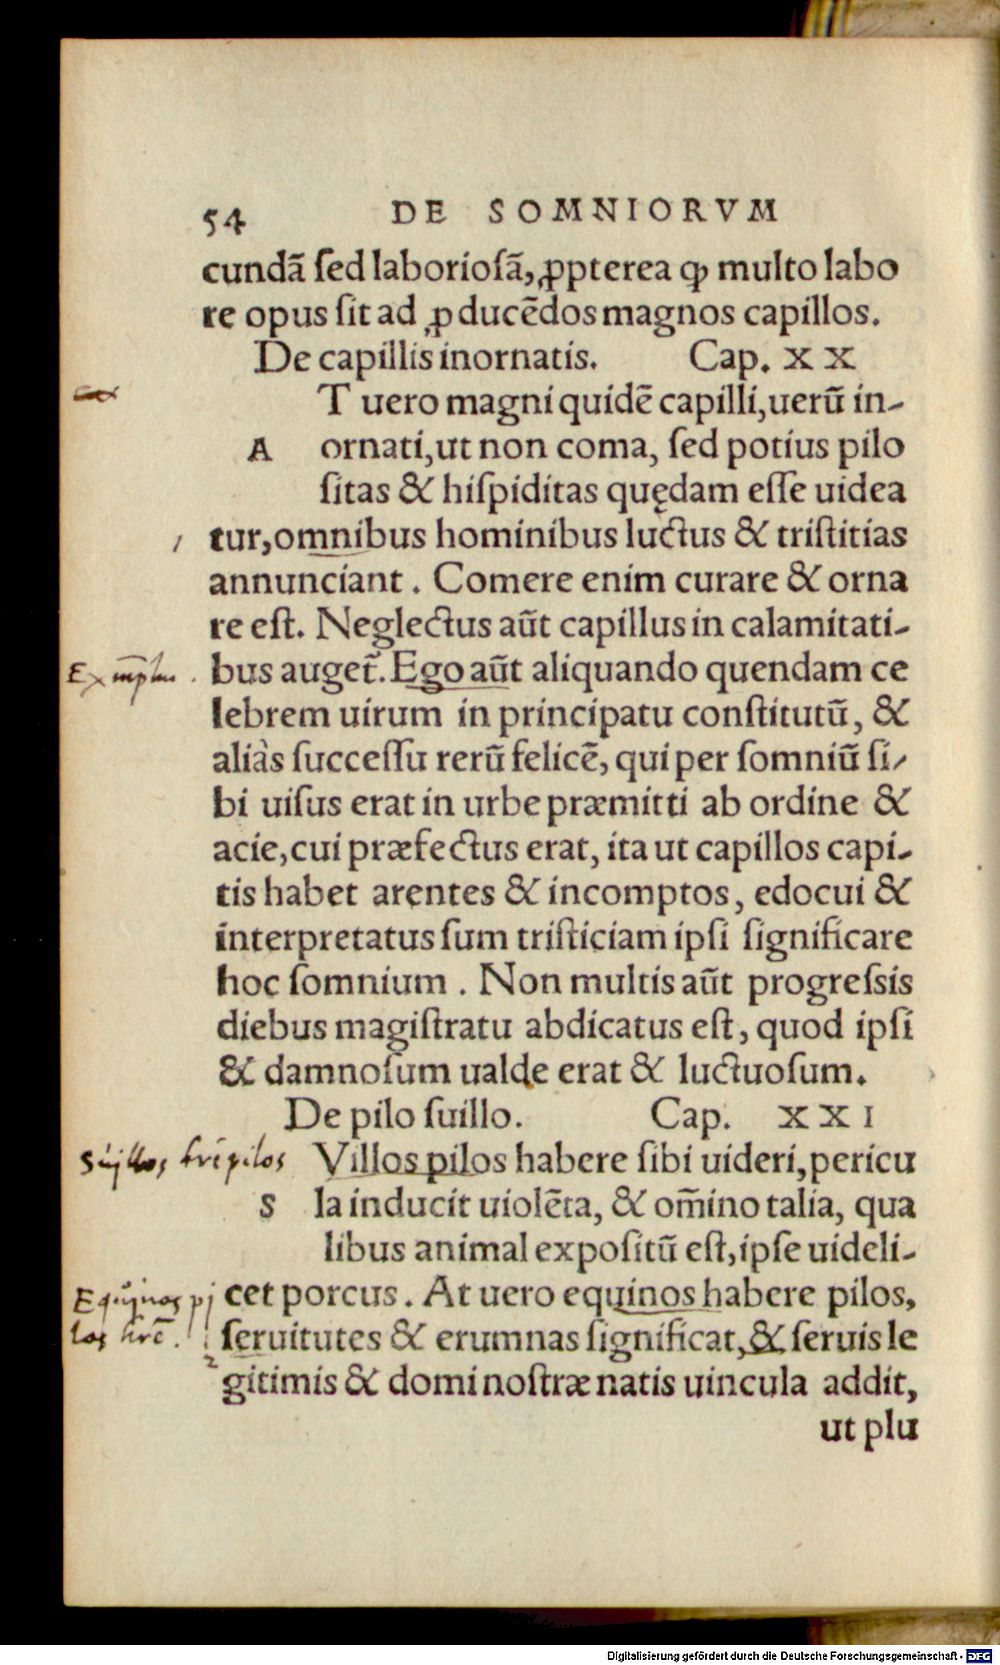 54 DE SOMNIORVM
cundã ſed laborioſã, ꝓpterea ꝙ multo labo
re opus ſit ad ꝓducẽdos magnos capillos.
De capillis inornatis. Cap. XX
T uero magni quidẽ capilli, uerũ in-
A ornati, ut non coma, ſed potius pilo
ſitas & hiſpiditas quędam eſſe uidea
1 tur, omnibus hominibus luctus & triſtitias
annunciant. Comere enim curare & orna
re eſt. Neglectus aũt capillus in calamitati-
Exm̃plu. bus auget̃. Ego aũt aliquando quendam ce
lebrem uirum in principatu conſtitutũ, &
aliàs ſucceſſu rerũ felicẽ, qui per ſomniũ ſi-
bi uiſus erat in urbe præmitti ab ordine &
acie, cui præfectus erat, ita ut capillos capi-
tis habet arentes & incomptos, edocui &
interpretatus ſum triſticiam ipſi ſignificare
hoc ſomnium. Non multis aũt progreſsis
diebus magiſtratu abdicatus eſt, quod ipſi
& damnoſum ualde erat & luctuoſum.
De pilo ſuillo. Cap. XXI
Suyllos pilos Villos pilos habere ſibi uideri, pericu
S la inducit uiolẽta, & om̃ino talia, qua
libus animal expoſitũ eſt, ipſe uideli-
Equinos pi cet porcus. At uero equinos habere pilos,
los ſeruitutes & erumnas ſignificat, & ſeruis le
2 gitimis & domi noſtræ natis uincula addit,
ut plu
Digitalisierung gefördert durch die Deutsche Forschungsgemeinschaft - DFG